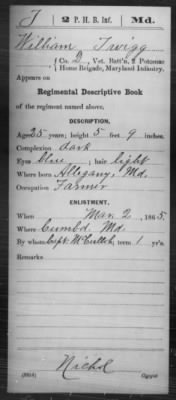 T 2 P. H. B. Inf. Md.
William Twigg
Co. D, Vet. Batt'n, 2 Potomac
Home Brigade, Maryland Infantry.
Appears on
Regimental Descriptive Book
of the regiment named above.
DESCRIPTION.
Age 25 years; height 5 feet 9 inches.
Complexion dark
Eyes blue; hair light
Where born Allegany, Md.
Occupation Farmer
ENLISTMENT.
When Mar. 2, 1865.
Where Cumbd, Md
By whom Capt. McCulloh; term 1 yr's.
Remarks
Nichol
Copyist